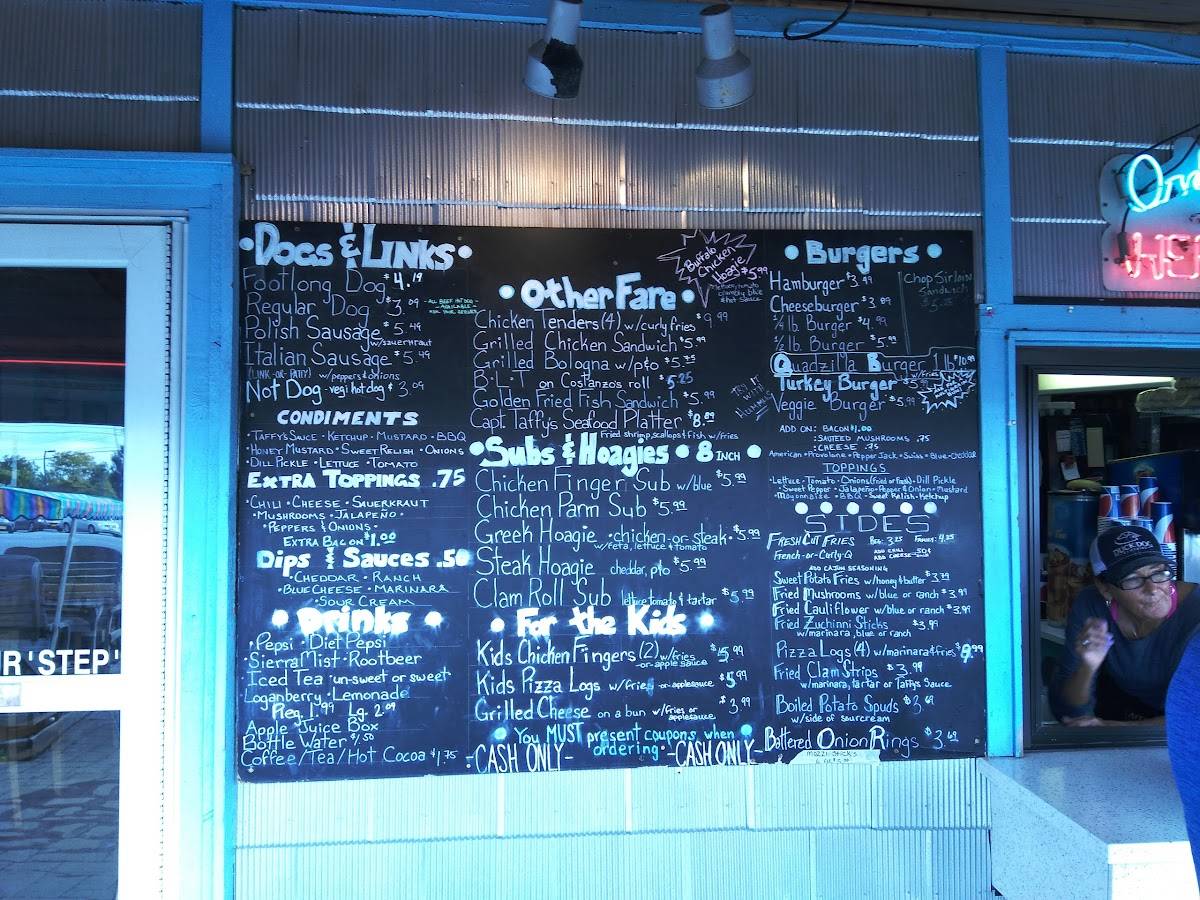 •Dogs & Links•
Footlong Dog $4.19
Regular Dog $3.09
ALL BEEF HOT DOG
- AVAILABLE -
ASK YOUR SERVER
Polish Sausage $5.49
w/sauerkraut
Italian Sausage $5.49
(LINK-OR-PATTY) w/peppers & onions
Not Dog vegi hot dog $3.09
CONDIMENTS
•TAFFY'S SAUCE • KETCHUP • MUSTARD • BBQ
•HONEY MUSTARD • SWEET RELISH • ONIONS
•DILL PICKLE • LETTUCE • TOMATO
EXTRA TOPPINGS .75
•CHILI • CHEESE • SAUERKRAUT
•MUSHROOMS • JALAPEÑO •
•PEPPERS & ONIONS•
EXTRA BACON $1.00
Dips & Sauces .50
•CHEDDAR • RANCH
•BLUE CHEESE • MARINARA
•SOUR CREAM
•Drinks•
•Pepsi • Diet Pepsi
•Sierra Mist • Rootbeer
Iced Tea un-sweet or sweet
Loganberry • Lemonade
Reg. 1.99 Lg. 2.09
Apple Juice Box
Bottle Water $1.50
Coffee/Tea/Hot Cocoa $1.75
Buffalo
Chicken
Hoagie $5.99
lettuce, tomato
crumbly blue
& hot sauce
•Other Fare•
Chicken Tenders (4) w/curly fries $9.99
Grilled Chicken Sandwich $5.99
Grilled Bologna w/p&o $5.25
B.L.T on Costanzo's roll $5.25
TRY IT
WITH
HUMMUS
Golden Fried Fish Sandwich $5.99
Capt. Taffy's Seafood Platter $8.99
Fried shrimp, scallops & fish w/fries
•Subs & Hoagies • 8 INCH •
Chicken Finger Sub w/blue $5.99
Chicken Parm Sub $5.99
Greek Hoagie •chicken-or-steak• $5.99
w/feta, lettuce & tomato
Steak Hoagie cheddar, p&o $5.99
Clam Roll Sub lettuce, tomato & tartar $5.99
• For the Kids •
Kids Chicken Fingers (2) w/fries $5.99
-or-apple sauce
Kids Pizza Logs w/fries -or-applesauce $5.99
Grilled Cheese on a bun w/fries-or $3.99
applesauce
• You MUST present coupons when •
ordering•
-CASH ONLY-
-CASH ONLY-
• Burgers •
Hamburger $3.49
Chop Sirloin
Sandwich
$5.25
Cheeseburger $3.99
1/4 lb. Burger $4.99
1/2 lb. Burger $5.99
Quadzilla Burger 1 lb $10.99
Turkey Burger $5.99
w/fries
Veggie Burger $5.99
ADD ON: BACON $1.00
:SAUTEED MUSHROOMS .75
:CHEESE .75
American • Provolone • Pepper Jack • Swiss • Blue • Cheddar
TOPPINGS
•Lettuce • Tomato • Onions (fried or fresh) • Dill Pickle
•Sweet Pepper • Jalapeño • Pepper & Onion • Mustard
•Mayonnaise • BBQ • Sweet Relish • Ketchup
SIDES
FRESH CUT FRIES REG: 3.25 FAMILY: 4.25
French-or-Curly-Q ADD CHILI 50¢
ADD CHEESE
ADD CAJUN SEASONING
Sweet Potato Fries w/honey & butter $3.79
Fried Mushrooms w/blue or ranch $3.99
Fried Cauliflower w/blue or ranch $3.99
Fried Zuchinni Sticks $3.99
w/marinara, blue or ranch
Pizza Logs (4) w/marinara & fries $9.99
Fried Clam Strips $3.99
w/marinara, tartar or Taffy's Sauce
Boiled Potato Spuds $3.69
w/side of sourcream
Battered Onion Rings $3.69
MOZZI STICKS
UR 'STEP'
HE
DUCK DOG